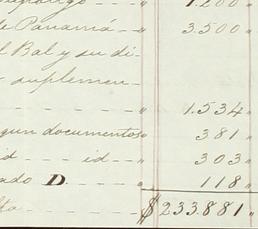 1.200 "
de Panamá - - " 3.500 "
l Bal y su di-
r suplemen-
- - - " 1.534 "
gun documentos " 381 "
id - - id - - - " 303 "
ado D. - - - " 118 "
$ 233.881 "